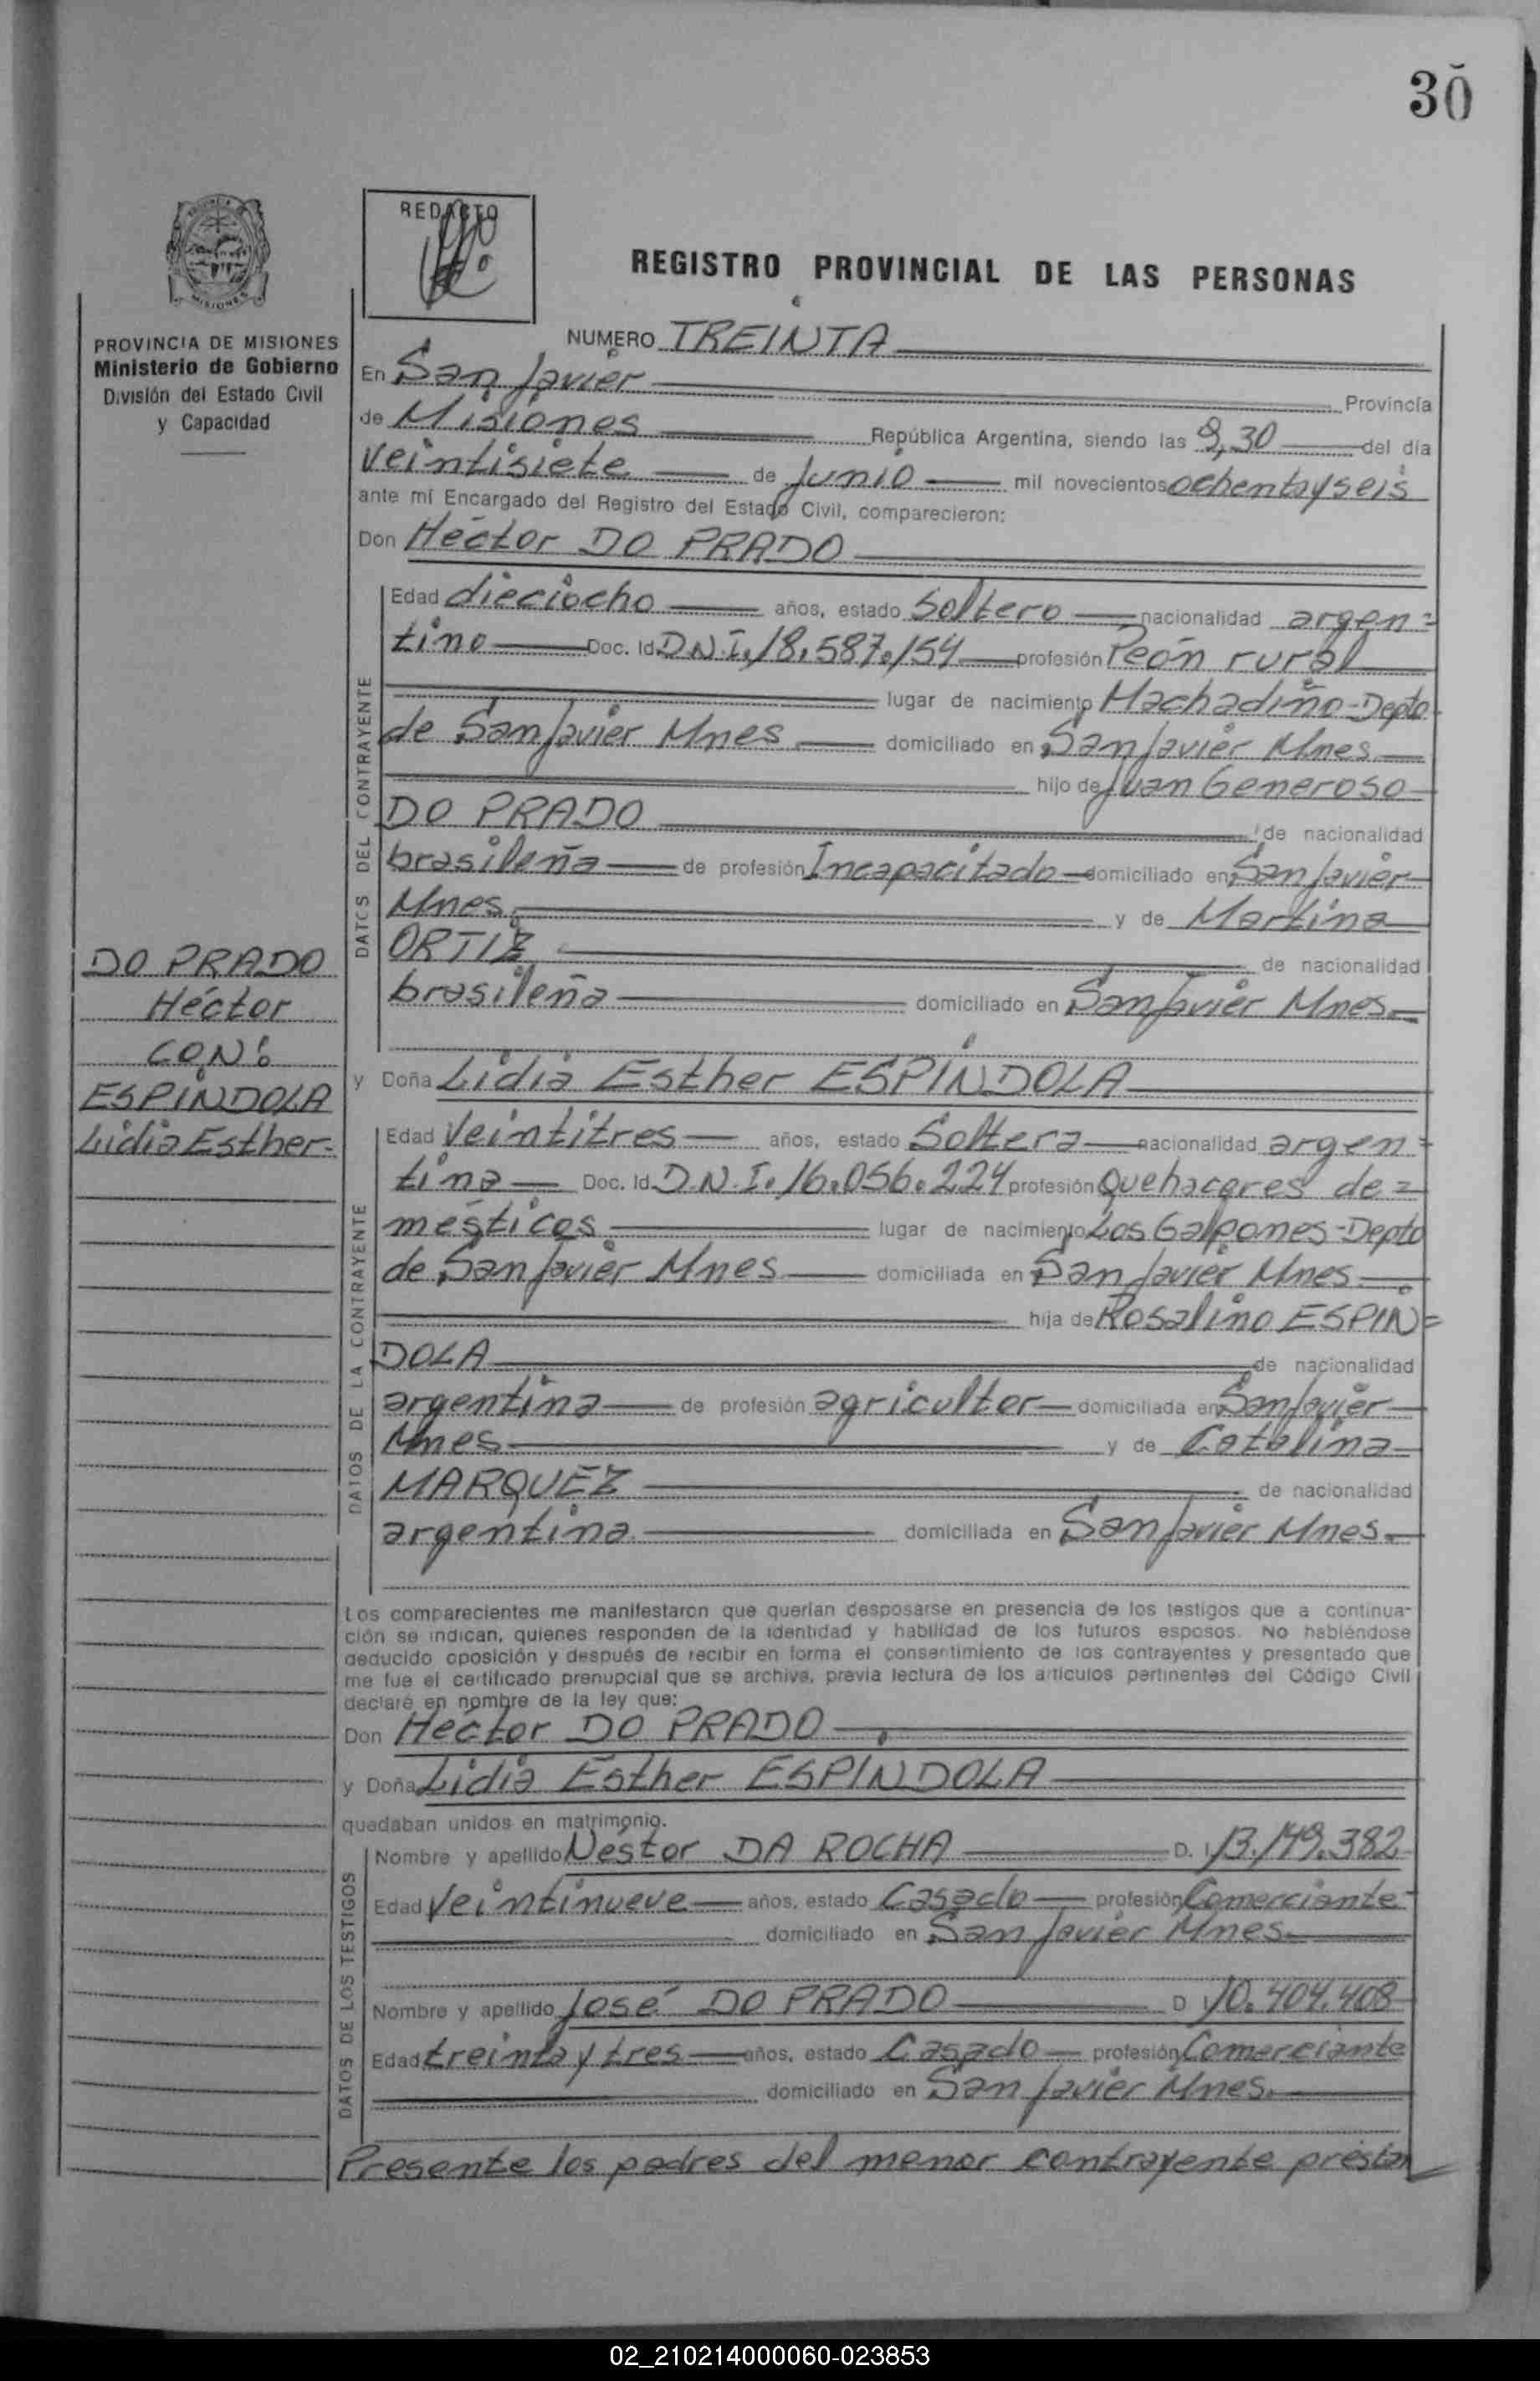 30
REDACTO
REGISTRO PROVINCIAL DE LAS PERSONAS
MISIONES
PROVINCIA DE MISIONES
Ministerio de Gobierno
División del Estado Civil
y Capacidad
NUMERO TREINTA
En San Javier Provincia
de Misiones República Argentina, siendo las 9,30 del día
veintisiete de Junio mil novecientos ochentayseis
ante mí Encargado del Registro del Estado Civil, comparecieron:
Don Héctor DO PRADO
DATOS DEL CONTRAYENTE
Edad dieciocho años, estado Soltero nacionalidad argen=
tino Doc. Id. D.N.I. 18.587.154 profesión Peón rural
lugar de nacimiento Machadiño-Depto
de San Javier Mnes domiciliado en San Javier Mnes
hijo de Juan Generoso
DO PRADO de nacionalidad
brasileña de profesión Incapacitado domiciliado en San Javier
Mnes y de Martina
ORTIZ de nacionalidad
brasileña domiciliado en San Javier Mnes.
DO PRADO
Héctor
CON:
ESPÍNDOLA
Lidia Esther.
y Doña Lidia Esther ESPÍNDOLA
DATOS DE LA CONTRAYENTE
Edad Veintitres años, estado Soltera nacionalidad argen=
tina Doc. Id. D.N.I. 16.056.224 profesión Quehaceres do=
mésticos lugar de nacimiento Los Galpones-Depto
de San Javier Mnes domiciliada en San Javier Mnes
hija de Rosalino ESPIN=
DOLA de nacionalidad
argentina de profesión agricultor domiciliada en San Javier
Mnes y de Catalina
MARQUEZ de nacionalidad
argentina domiciliada en San Javier Mnes.
Los comparecientes me manifestaron que querían desposarse en presencia de los testigos que a continua-
ción se indican, quienes responden de la identidad y habilidad de los futuros esposos. No habiéndose
deducido oposición y después de recibir en forma el consentimiento de los contrayentes y presentado que
me fue el certificado prenupcial que se archiva, previa lectura de los artículos pertinentes del Código Civil
declaré en nombre de la ley que:
Don Héctor DO PRADO
y Doña Lidia Esther ESPÍNDOLA
quedaban unidos en matrimonio.
DATOS DE LOS TESTIGOS
Nombre y apellido Néstor DA ROCHA D. I. 13.149.382
Edad Veintinueve años, estado Casado profesión Comerciante
domiciliado en San Javier Mnes.
Nombre y apellido José DO PRADO D. I. 10.404.408
Edad treinta y tres años, estado Casado profesión Comerciante
domiciliado en San Javier Mnes.
Presente los padres del menor contrayente prestan
02_210214000060-023853